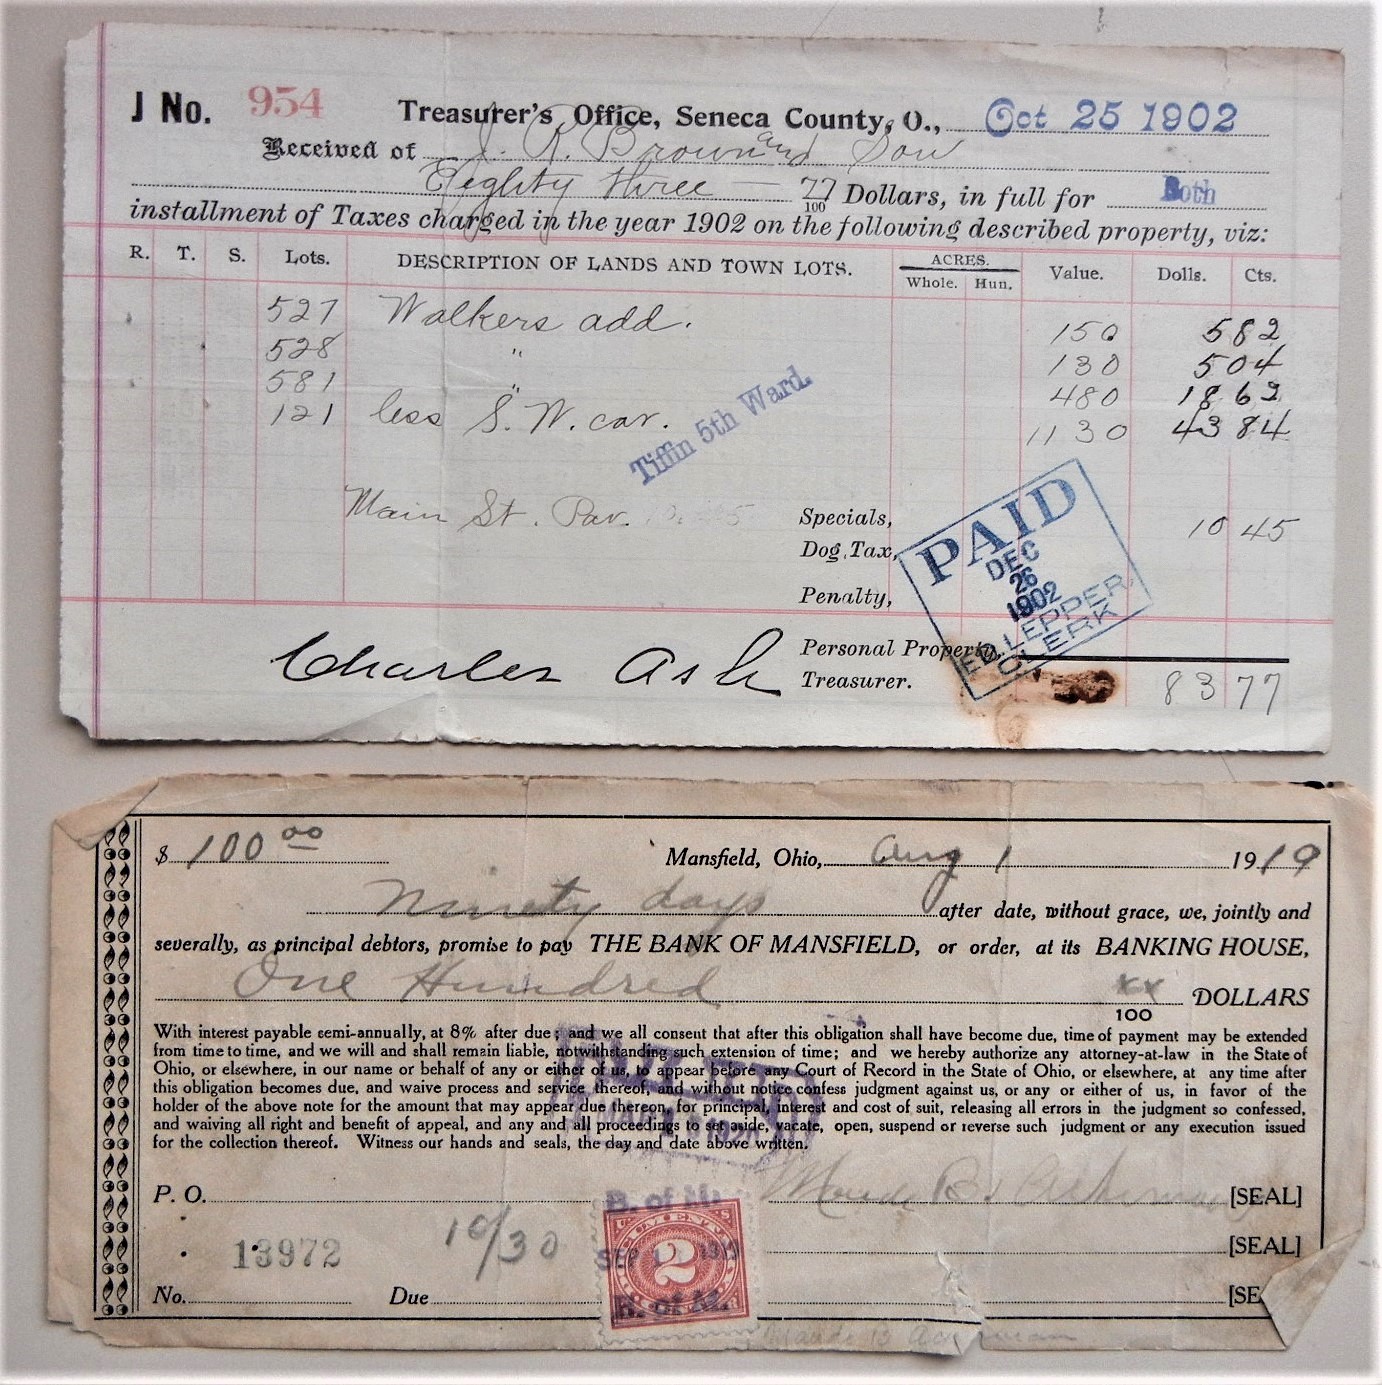 J No. 954 Treasurer's Office, Seneca County, O., Oct 25 1902
Received of J. R. Brown and Son
Eighty three — 77/100 Dollars, in full for Both
installment of Taxes charged in the year 1902 on the following described property, viz:
R. T. S. Lots. DESCRIPTION OF LANDS AND TOWN LOTS. ACRES. Value. Dolls. Cts.
Whole. Hun.
527 Walkers add. 150 5 82
528 " 130 5 04
581 " 480 18 62
121 less S. W. cor. 1130 43 84
Tiffin 5th Ward.
Main St. Pav. Specials, 10 45
Dog Tax,
Penalty,
PAID
DEC
26
1902
ED. LEPPER
CLERK
Personal Property,
Charles Ash Treasurer. 83 77
$ 100 00 Mansfield, Ohio, Aug 1 1919
Ninety days after date, without grace, we, jointly and
severally, as principal debtors, promise to pay THE BANK OF MANSFIELD, or order, at its BANKING HOUSE,
One Hundred xx/100 DOLLARS
With interest payable semi-annually, at 8% after due; and we all consent that after this obligation shall have become due, time of payment may be extended
from time to time, and we will and shall remain liable, notwithstanding such extension of time; and we hereby authorize any attorney-at-law in the State of
Ohio, or elsewhere, in our name or behalf of any or either of us, to appear before any Court of Record in the State of Ohio, or elsewhere, at any time after
this obligation becomes due, and waive process and service thereof, and without notice confess judgment against us, or any or either of us, in favor of the
holder of the above note for the amount that may appear due thereon, for principal, interest and cost of suit, releasing all errors in the judgment so confessed,
and waiving all right and benefit of appeal, and any and all proceedings to set aside, vacate, open, suspend or reverse such judgment or any execution issued
for the collection thereof. Witness our hands and seals, the day and date above written.
P. O. Maude B. Ackerman [SEAL]
B. of M.
13972 10/30 2 [SEAL]
No. Due B. of M. [SE
Maude B Ackerman